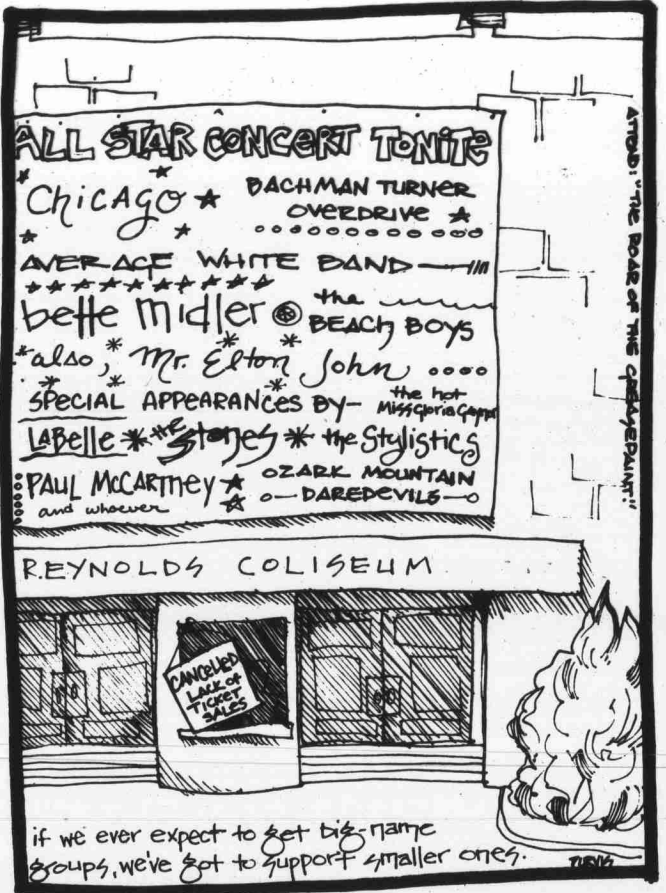 ALL STAR CONCERT TONITE
Chicago
BACHMAN TURNER
OVERDRIVE
AVERAGE WHITE BAND
bette midler
the
BEACH BOYS
also, Mr. Elton John
SPECIAL APPEARANCES BY-
the hot
Miss Gloria Gaynor
LABelle * the Stones * the Stylistics
PAUL McCARTney
and whoever
OZARK MOUNTAIN
DAREDEVILS
REYNOLDS COLISEUM
CANCELLED
LACK OF
TICKET
SALES
if we ever expect to get big-name
groups, we've got to support smaller ones.
ATTEND: "THE ROAR OF THE GREASEPAINT!"